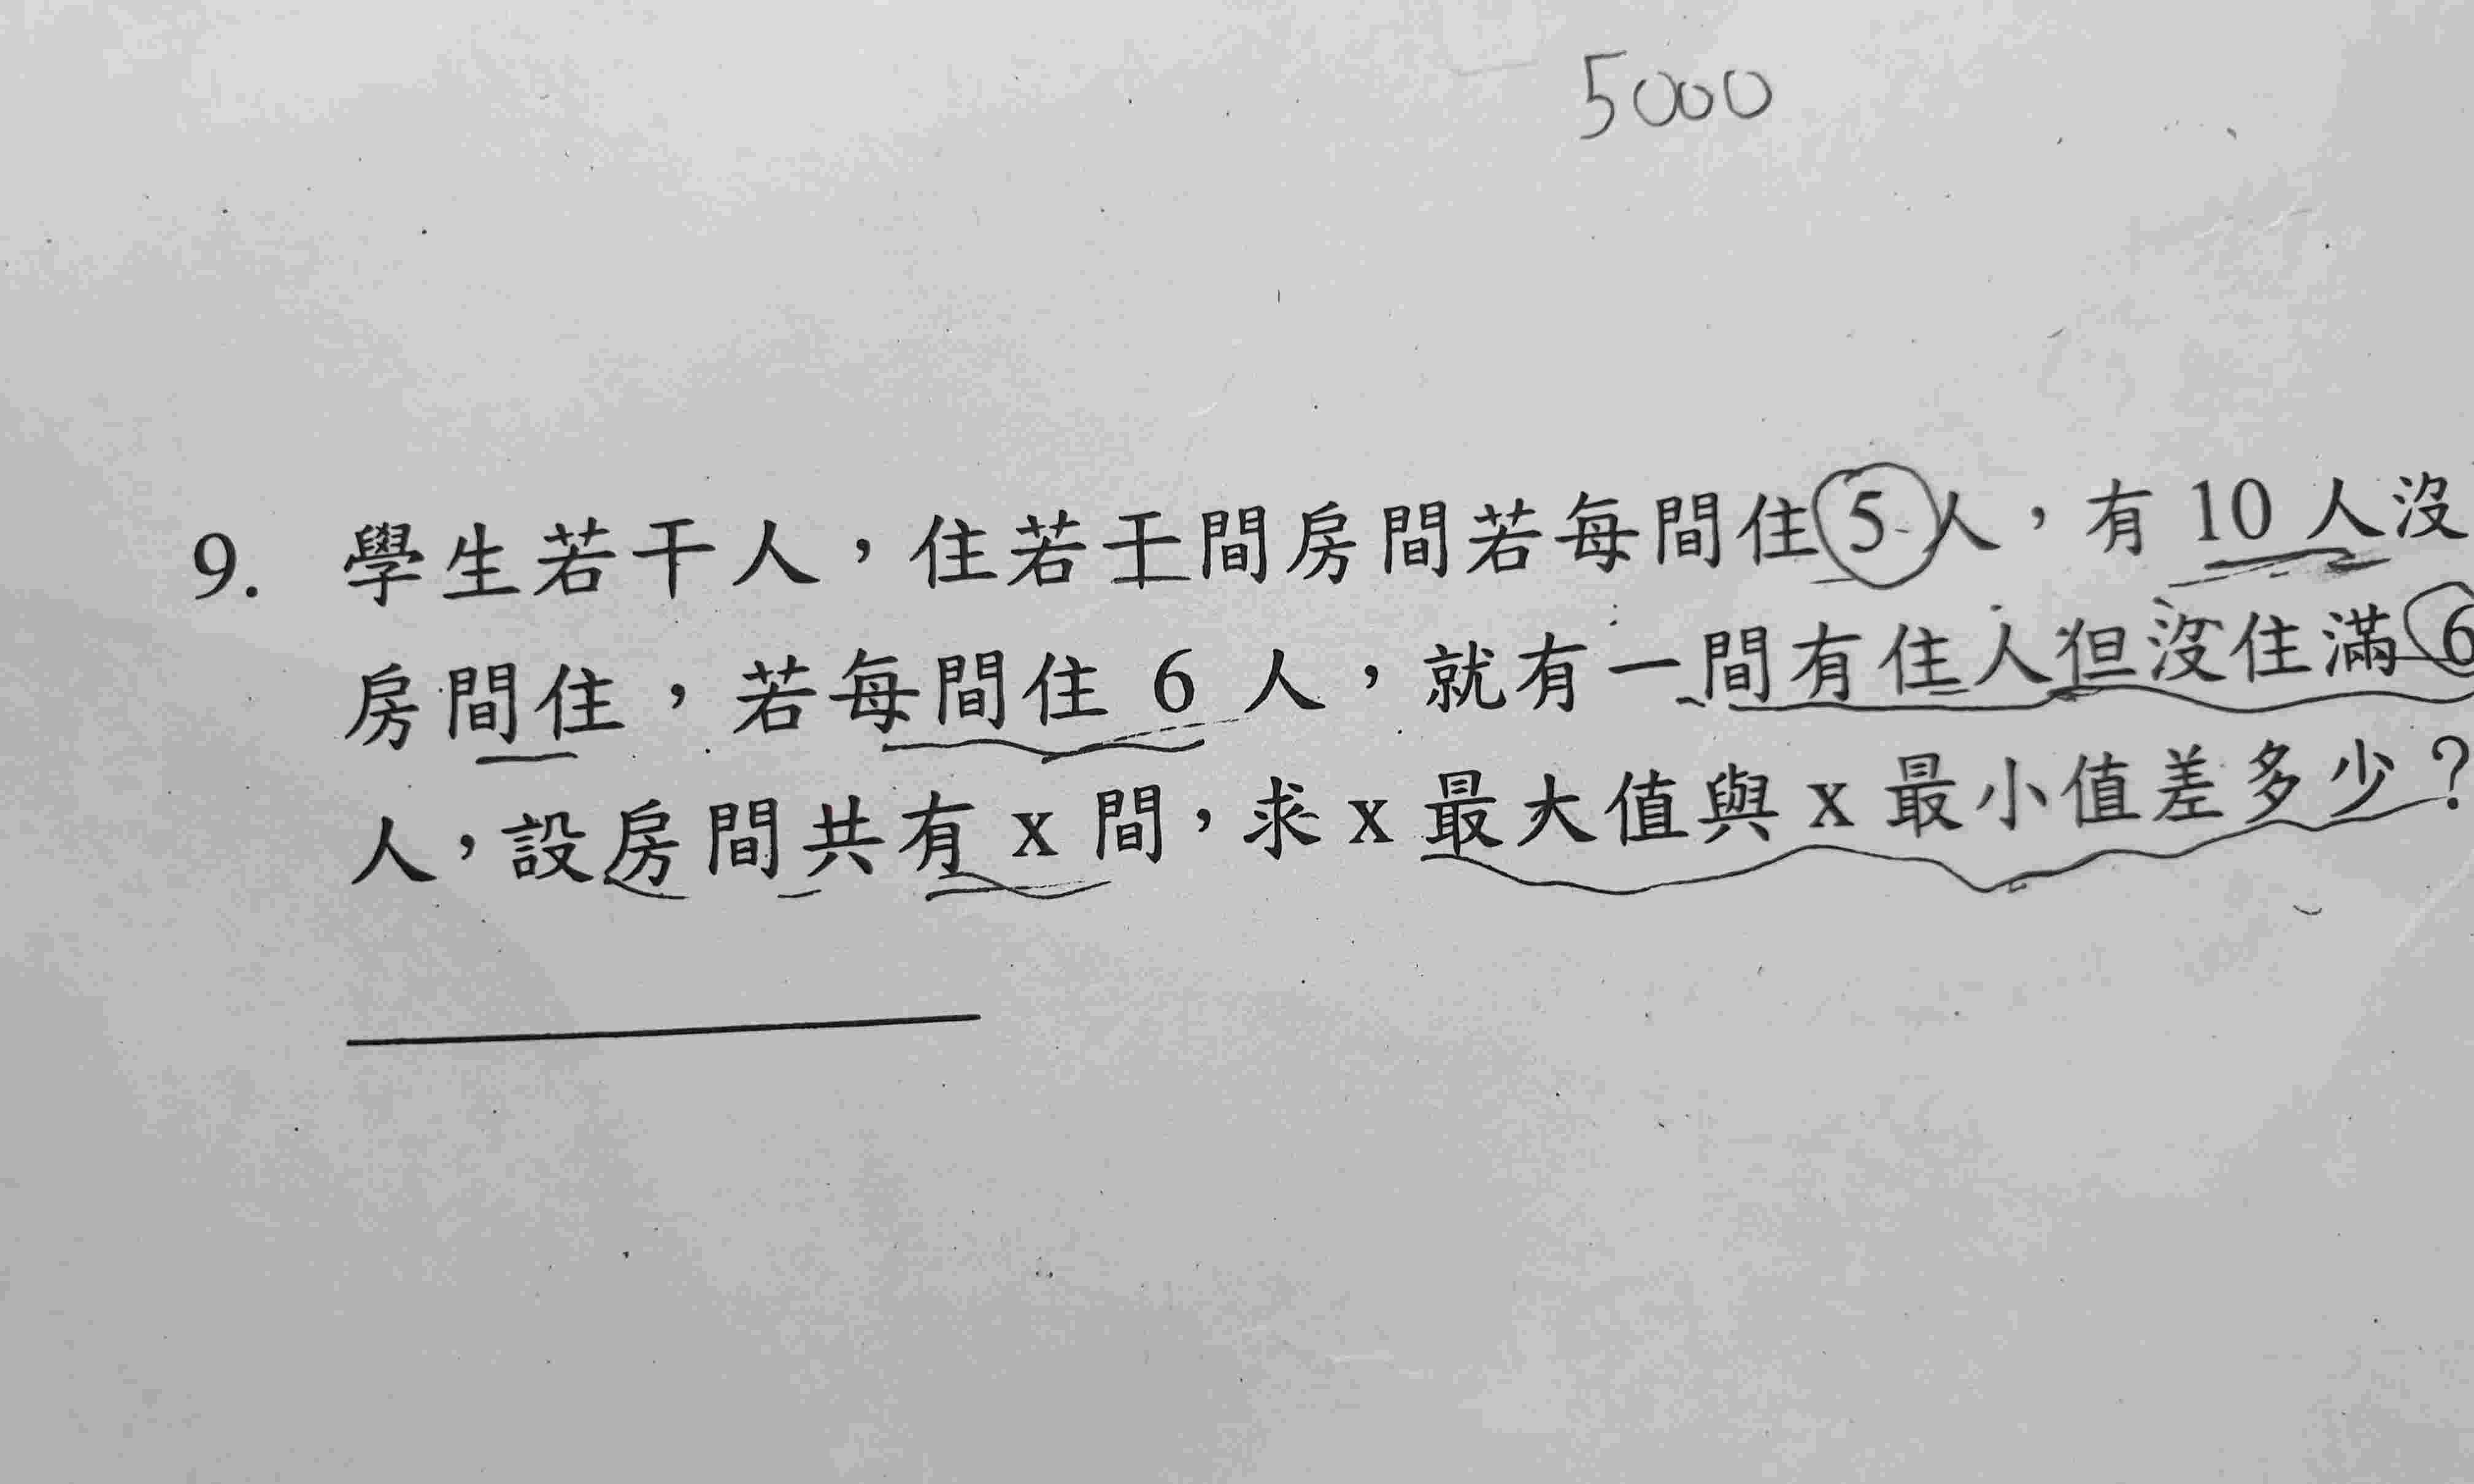 5000
9. 學生若干人，住若干間房間若每間住5人，有10人沒
房間住，若每間住 6 人，就有一間有住人但沒住滿6
人，設房間共有x間，求x最大值與x最小值差多少？